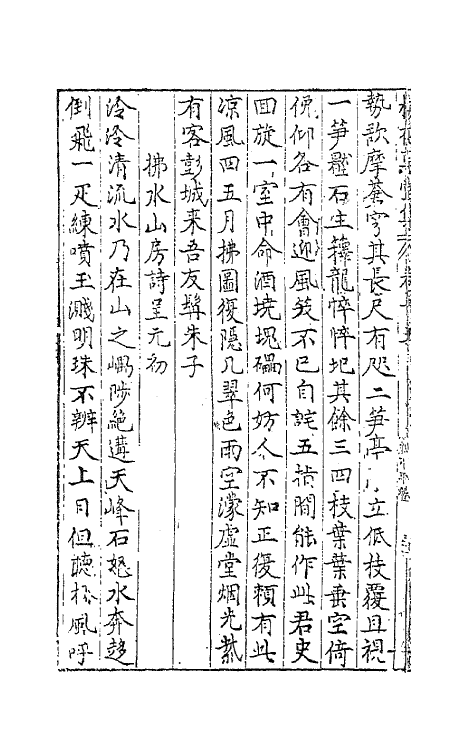 勢欲摩蒼穹其長尺有咫二笋亭亭立低枝覆且視
一笋壓石生籜龍悴悴圯其餘三四枝葉葉垂空倚
俛仰各有會迎風笑不已自詫五指間能作此君史
回旋一室中命酒境塊礧何妨人不知正復賴有此
凉風四五月拂圖復隱几翠色雨空濛虚堂烟光紫
有客彭城来吾友髯朱子
拂水山房詩呈元初
泠泠清流水乃在山之嶰陟絶遘天峰石怒水奔趍
倒飛一疋練噴玉濺明珠不辨天上日但聽松風呼